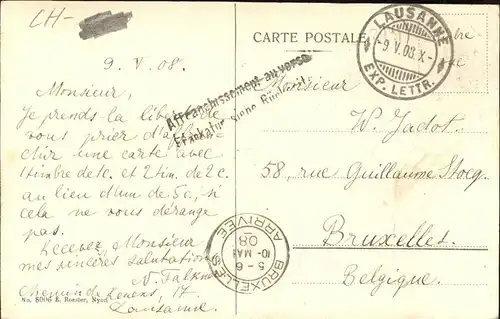 CH-
CARTE POSTALE
LAUSANNE
-9 V.08 X-
EXP. LETTR.
Affranchissement au verso
Frankatur siehe Rückseite
9. V. 08.
Monsieur,
Je prends la liberté de
vous prier d'affran
chir une carte avec
1 timbre de 10. et 2 tim. de 2 c.
au lieu d'un de 5 c., si
cela ne vous dérange
pas.
Recevez Monsieur
mes sincères salutations
N. Falkner
Chemin de 17
Lausanne.
Monsieur
W. Jadot
58, rue Guillaume Stocq.
Bruxelles.
Belgique.
BRUXELLES
5-6
10 MAI
08
ARRIVÉE
No. 8006 E. Rossier, Nyon